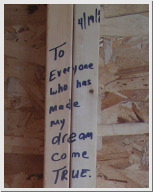 To
Everyone
who has
made
my
dream
come
TRUE.